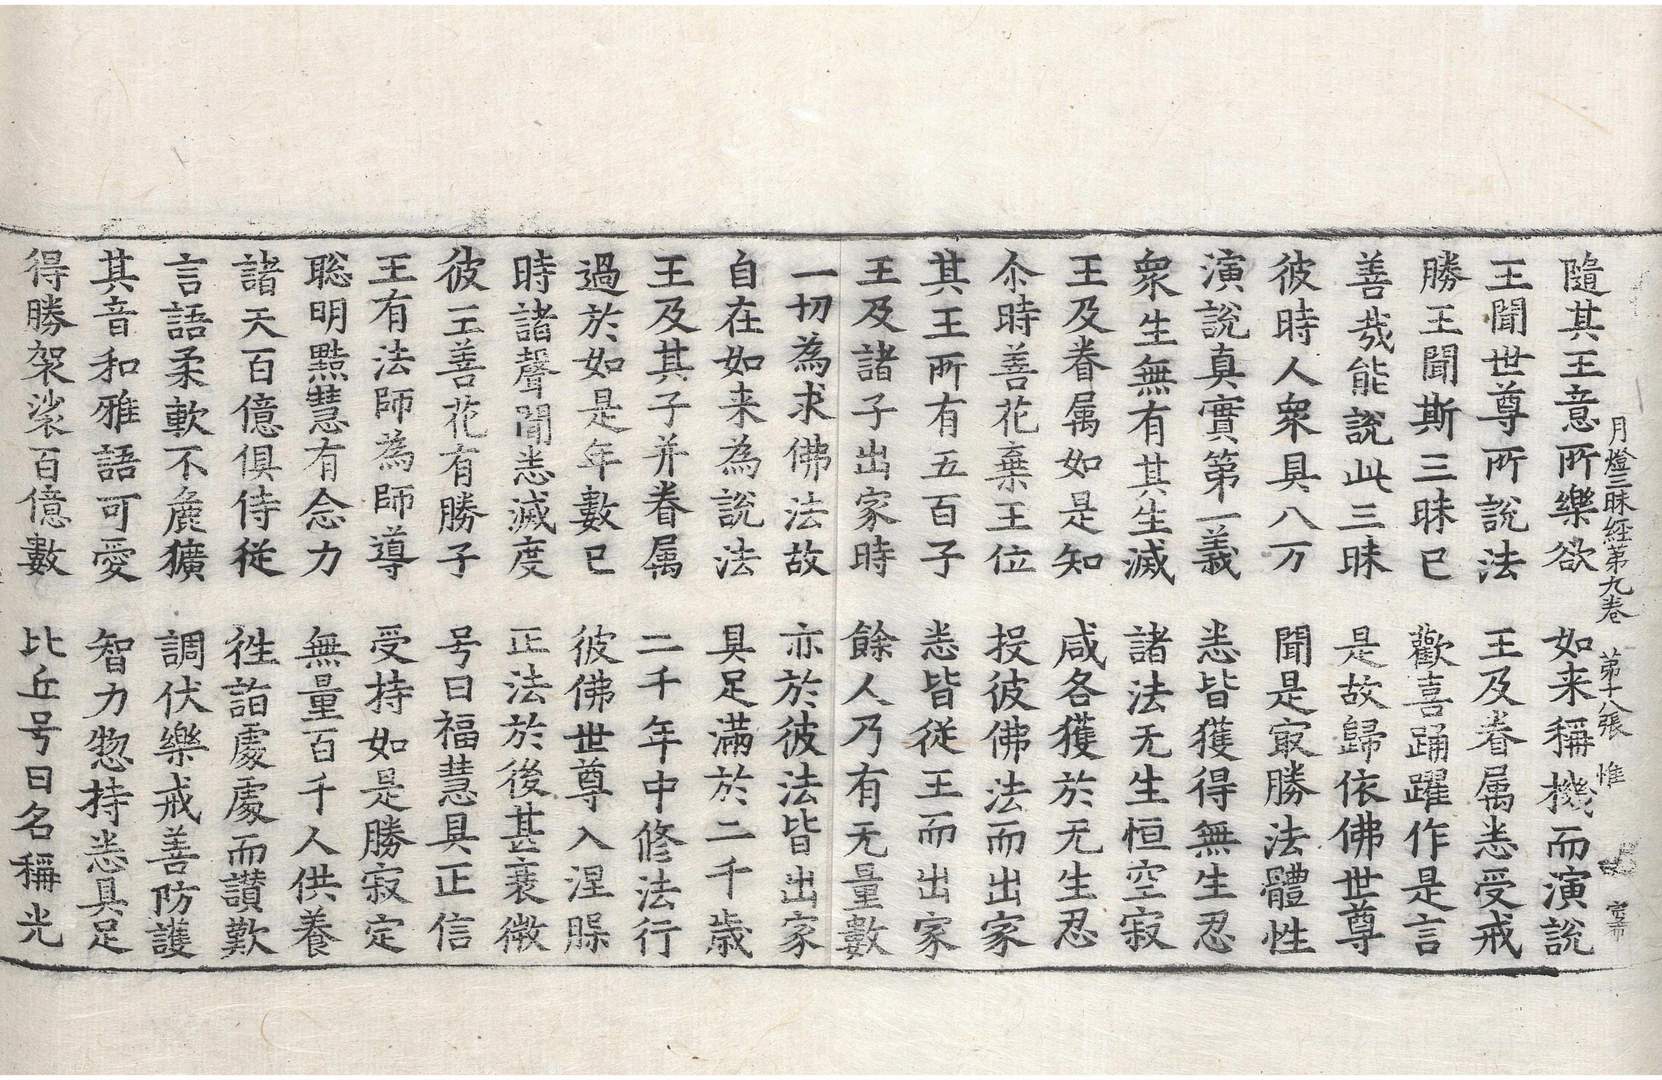 月燈三昧經第九卷　第十八張　惟
隨其王意所樂欲　如来稱機而演說
王聞世尊所說法　王及眷属悉受戒
勝王聞斯三昧已　歡喜踊躍作是言
善哉能說此三昧　是故歸依佛世尊
彼時人衆具八万　聞是㝡勝法體性
演說真實第一義　悉皆獲得無生忍
衆生無有其生滅　諸法无生恒空寂
王及眷属如是知　咸各獲於无生忍
尒時善花棄王位　投彼佛法而出家
其王所有五百子　悉皆従王而出家
王及諸子出家時　餘人乃有无量數
一切為求佛法故　亦於彼法皆出家
自在如来為說法　具足滿於二千歳
王及其子并眷属　二千年中修法行
過於如是年數已　彼佛世尊入涅槃
時諸聲聞悉滅度　正法於後甚衰微
彼王善花有勝子　号曰福慧具正信
王有法師為師導　受持如是勝寂定
聡明黠慧有念力　無量百千人供養
諸天百億俱侍従　徃詣處處而讃歎
言語柔軟不麁獷　調伏樂戒善防護
其音和雅語可愛　智力惣持悉具足
得勝袈裟百億數　比丘号曰名稱光